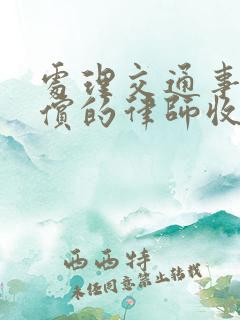 處理交通事
償的律師收
西西特
未径同意禁止转载